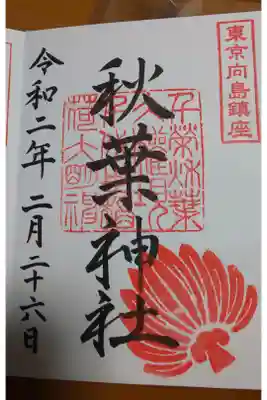 東京向島鎮座
秋葉神社
令和二年二月二十六日